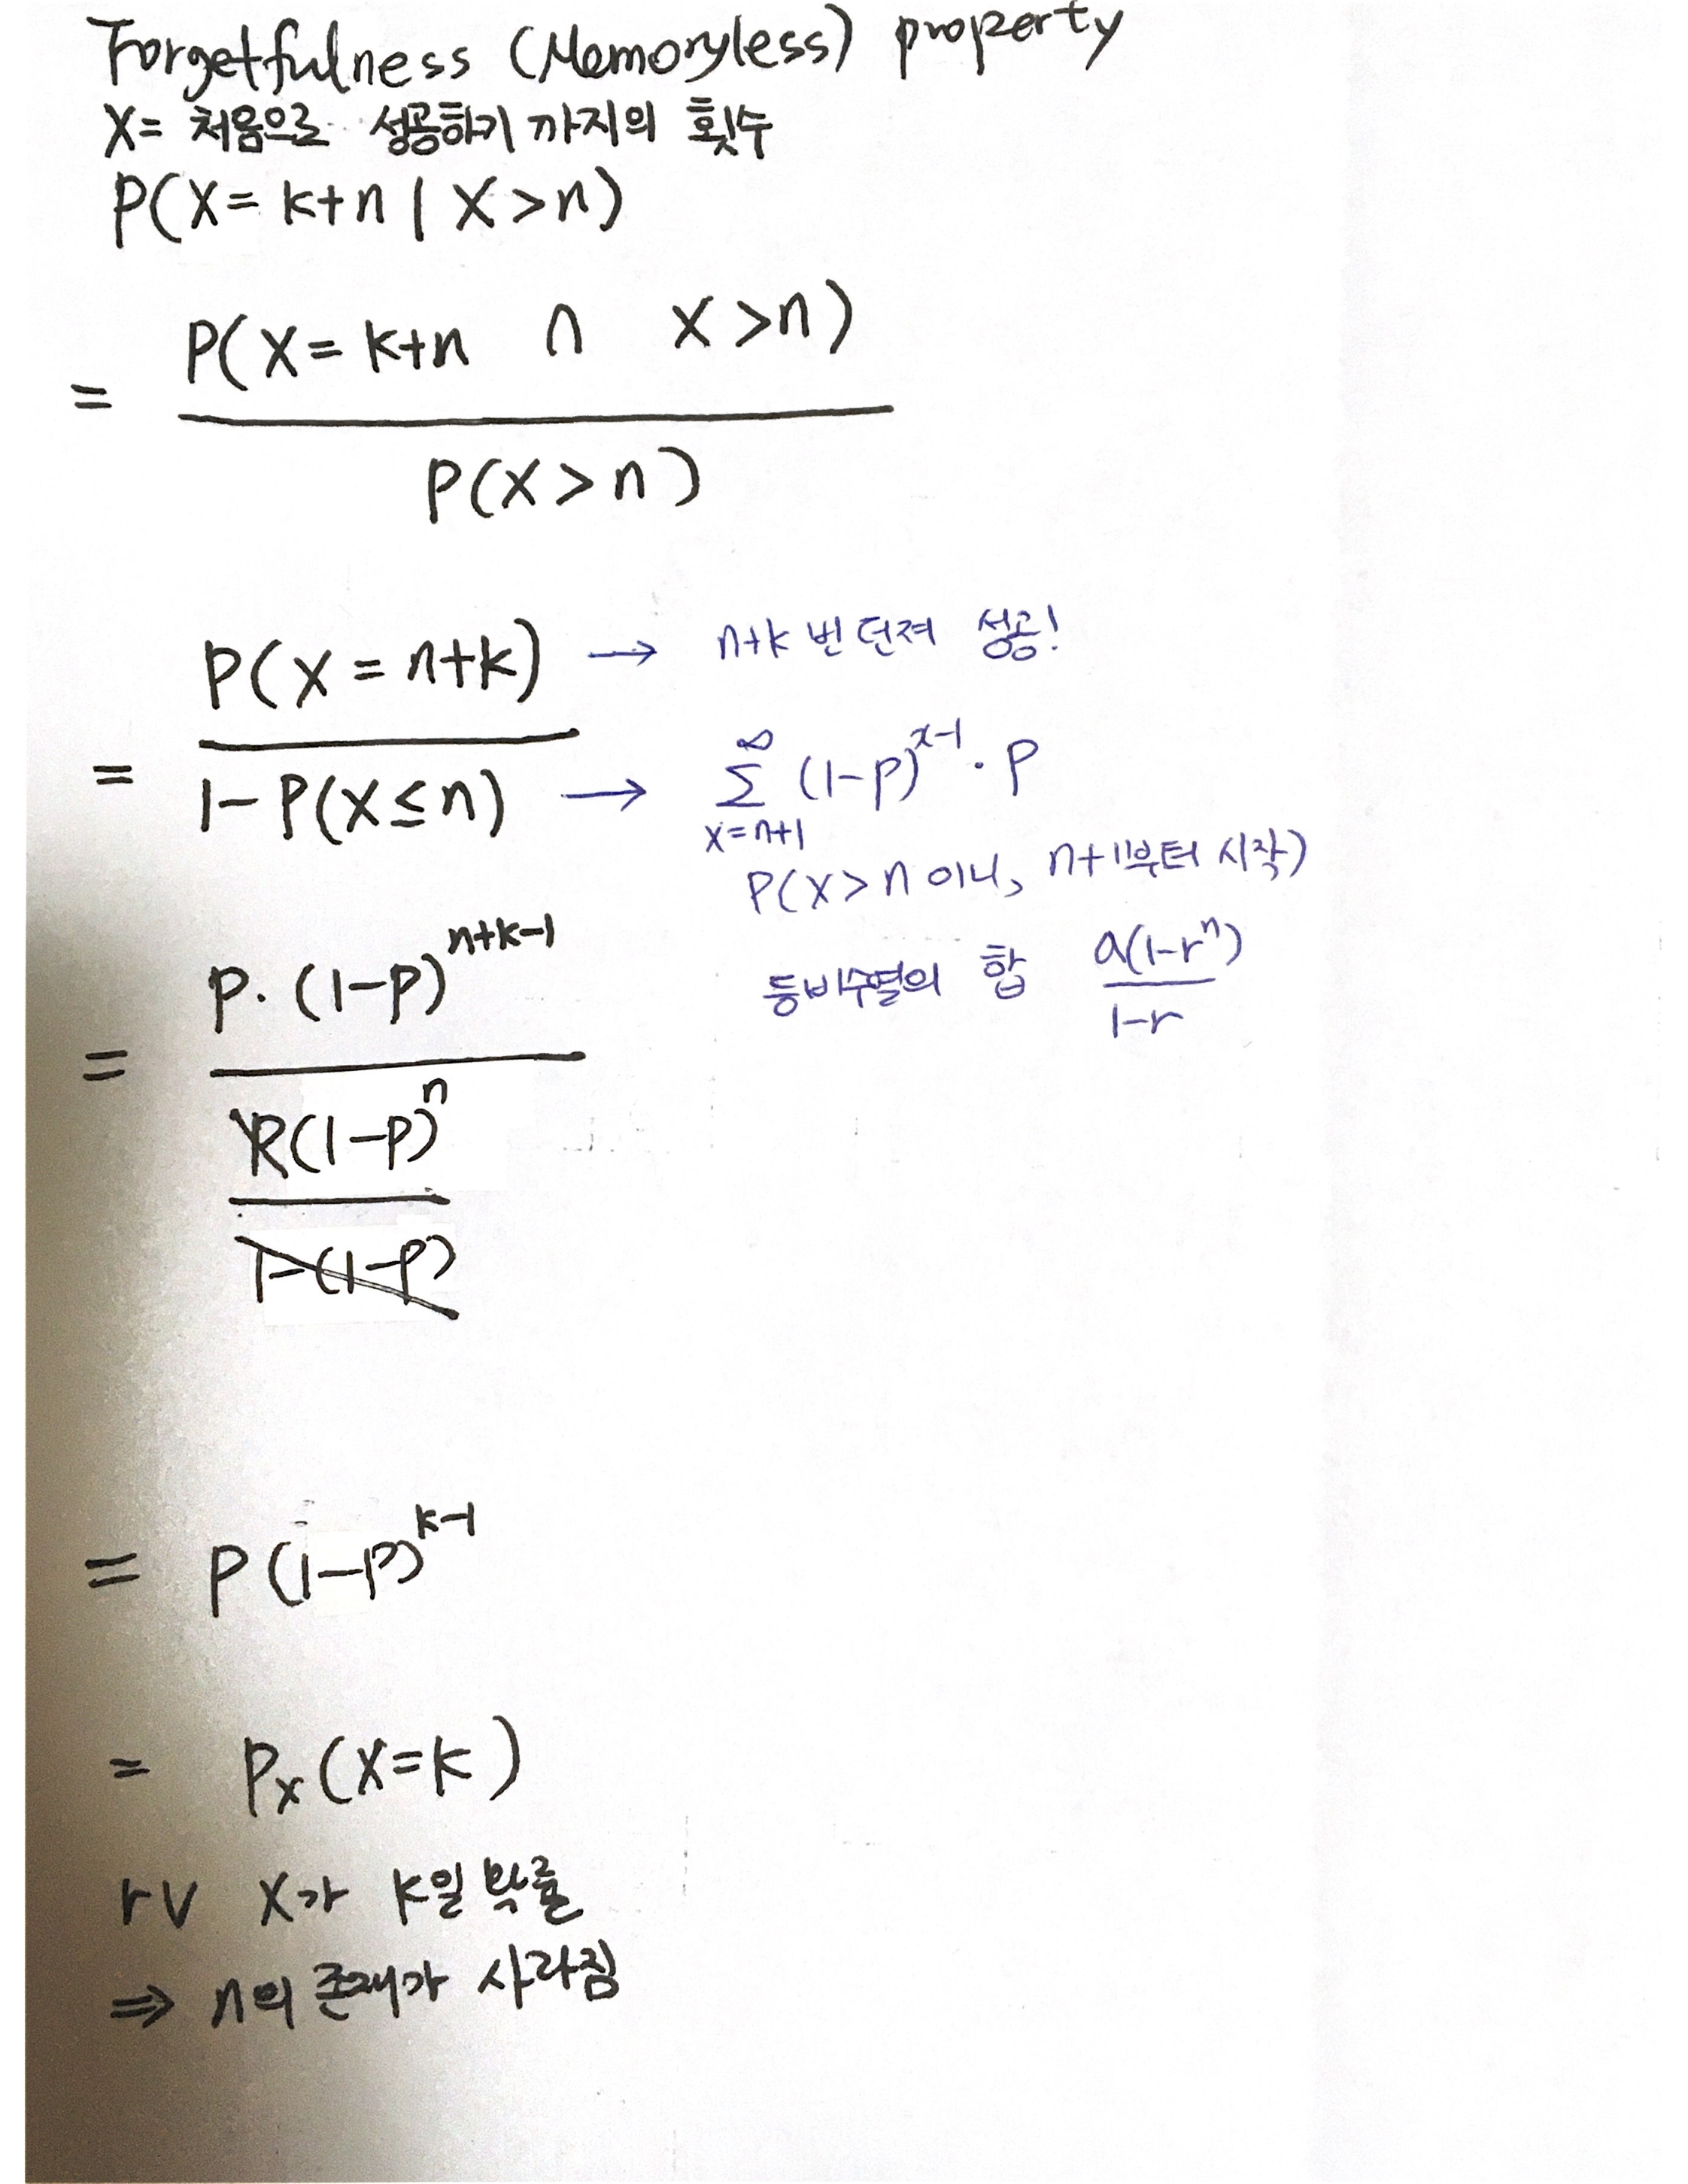 Forgetfulness (Memoryless) property
X= 처음으로 성공하기 까지의 횟수
P(X= k+n | X>n)
= P(X= k+n ∩ X>n)
P(X>n)
= P(X=n+k) → n+k 번 던져 성공!
1-P(X≤n) → ∞ Σ x=n+1 (1-p)^x-1 · p
P(X>n 이니, n+1부터 시작)
등비수열의 합 a(1-r^n)
1-r
= p·(1-p)^n+k-1
p(1-p)^n
1-(1-p)
= P(1-P)^k-1
= Px(X=k)
rv X가 k일 확률
⇒ n의 존재가 사라짐